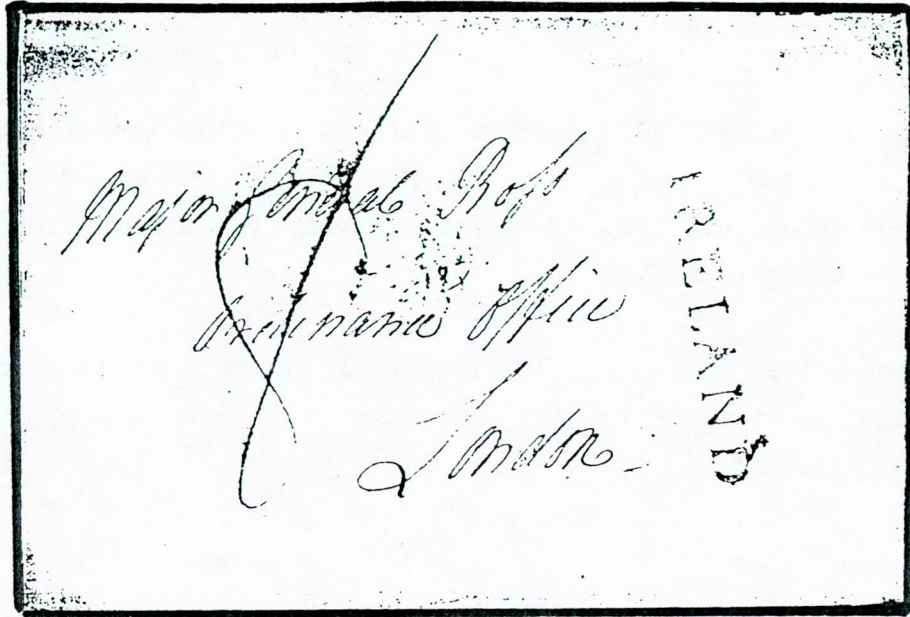 Major General Ross
Ordinance Office
London
IRELAND